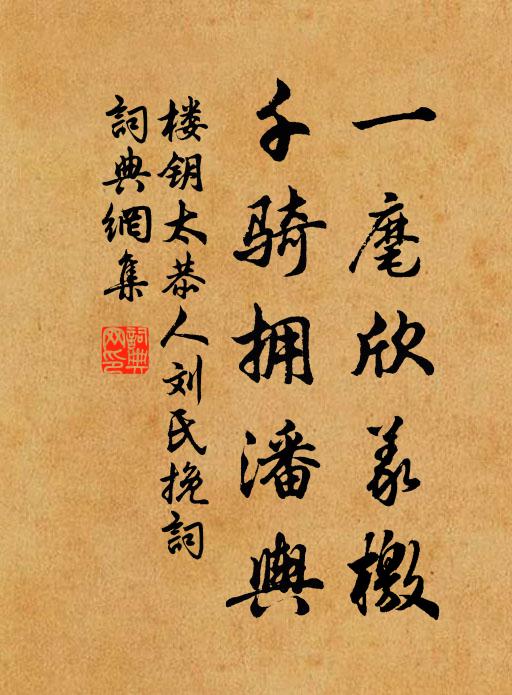 一麾欣義檄
千骑拥潘舆
楼钥太恭人刘氏挽詞
詞典網集
詞典网印